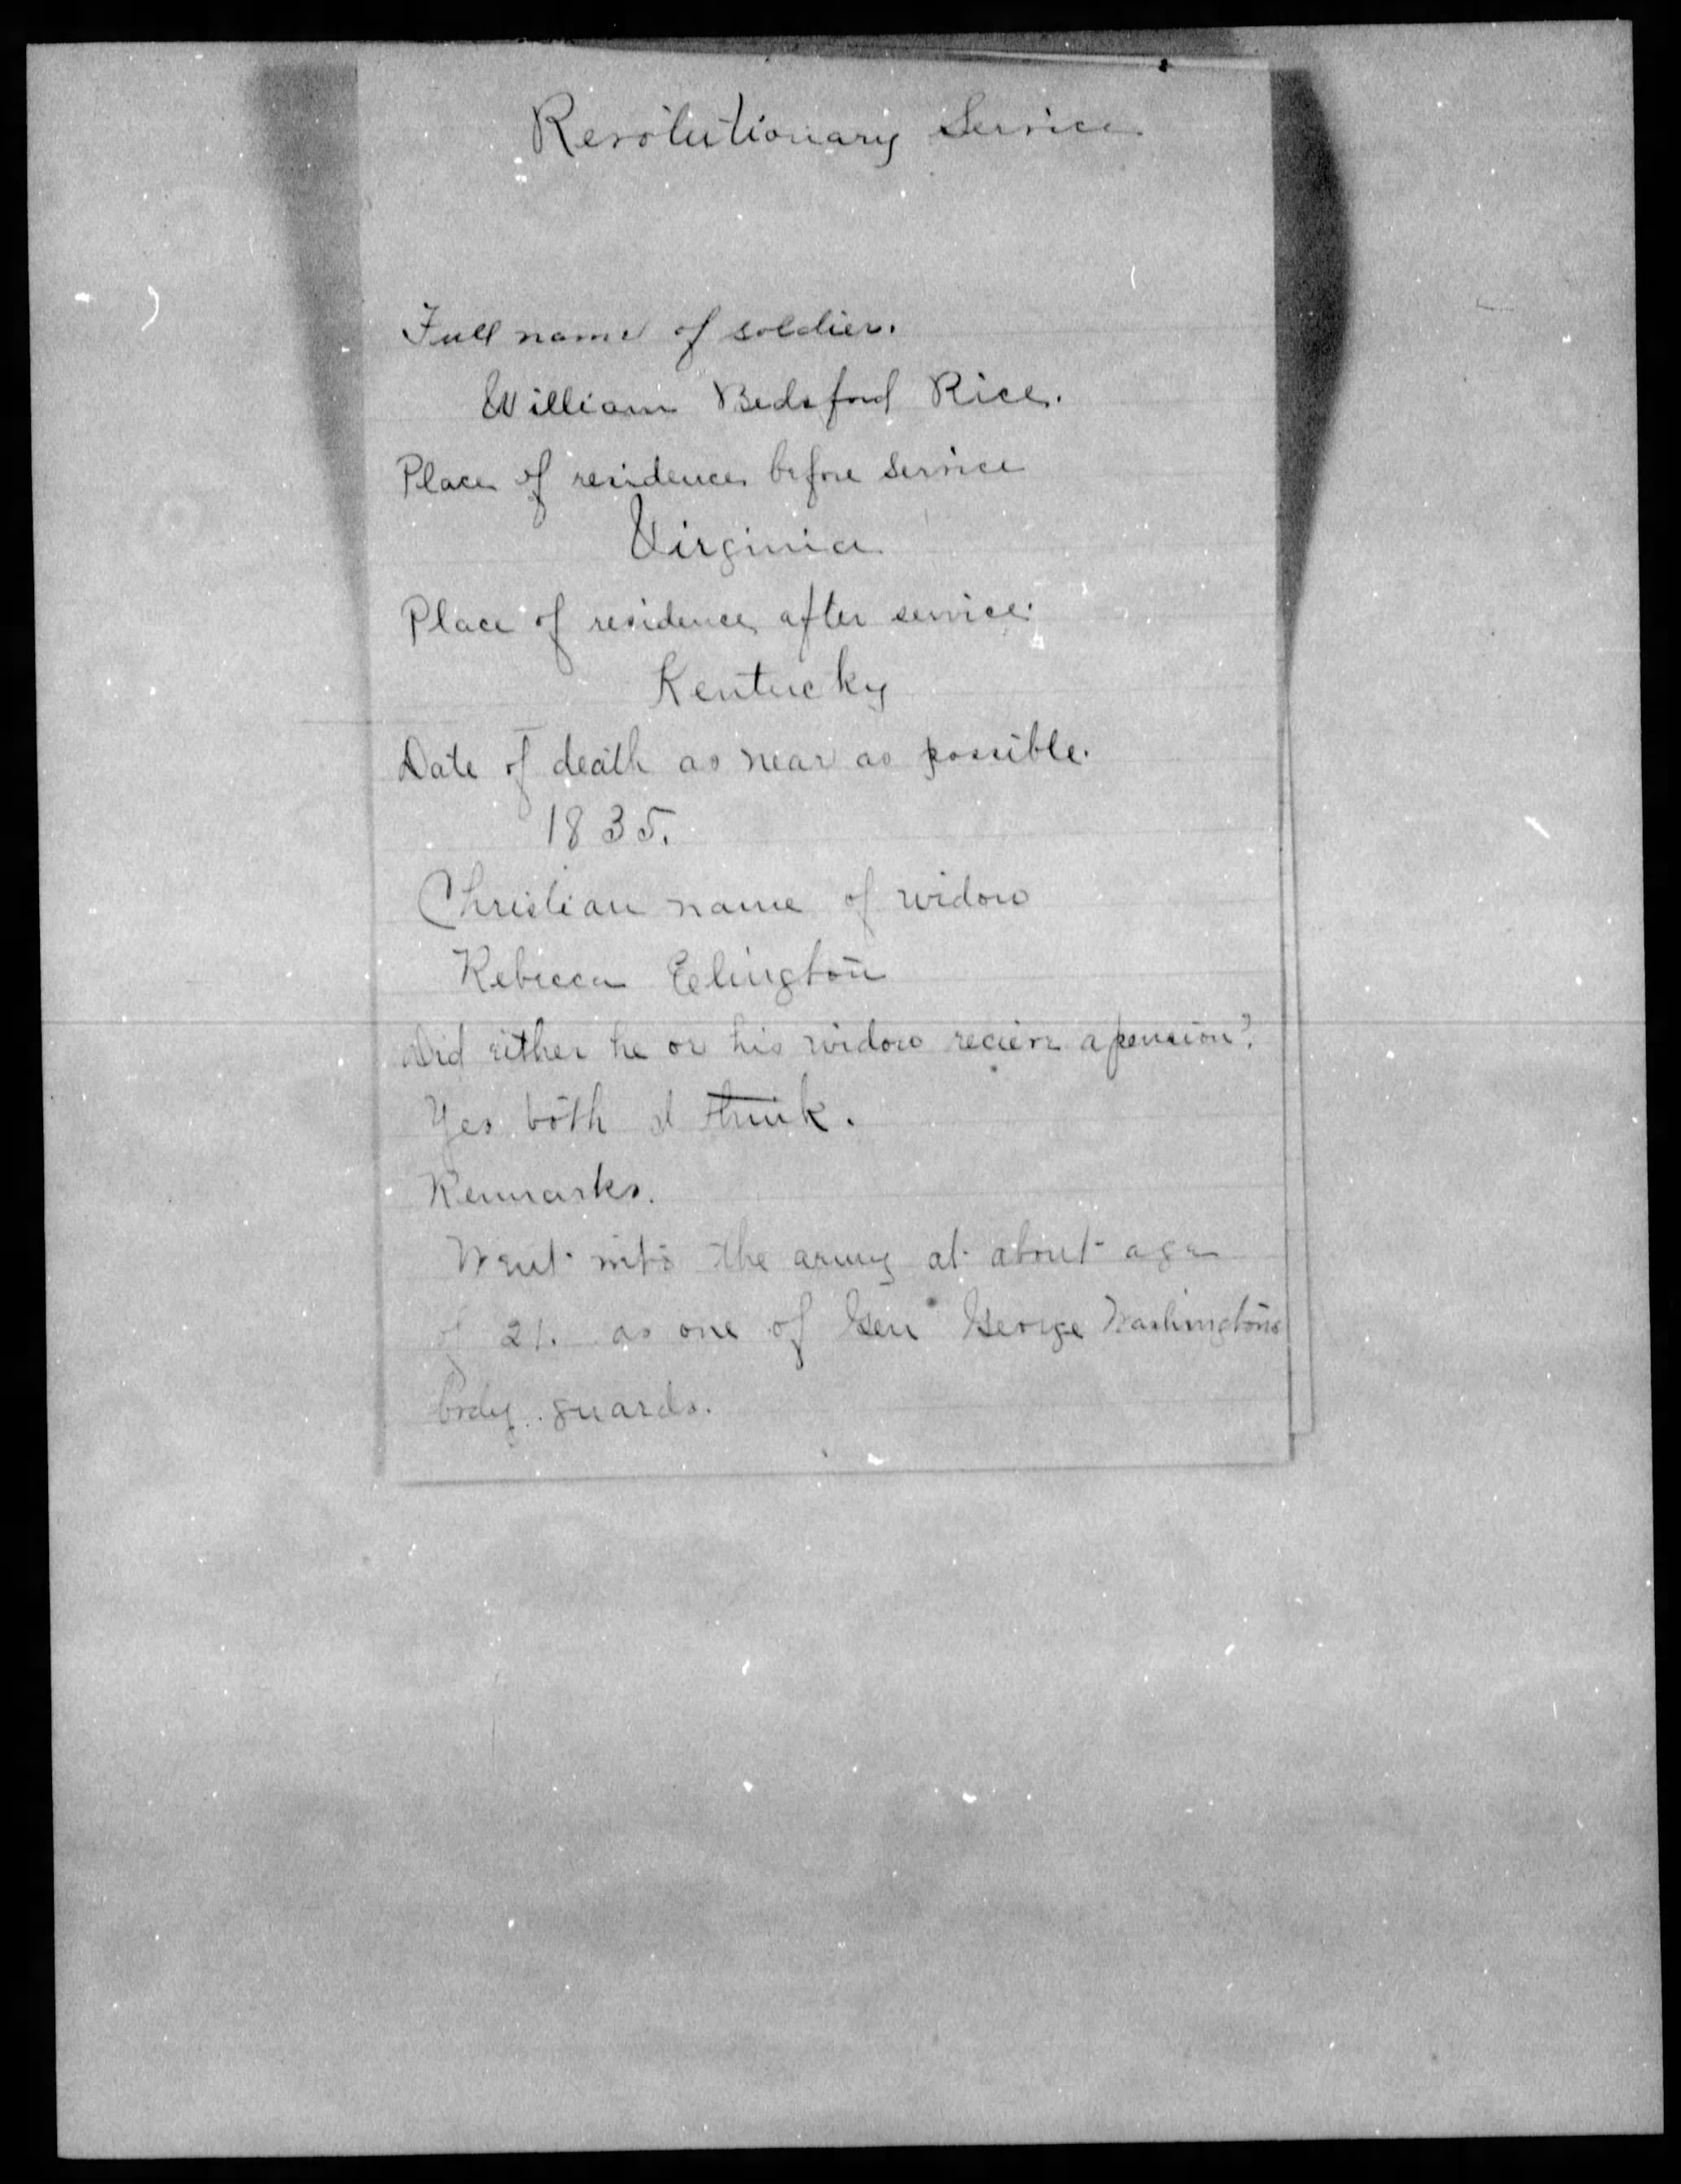 Revolutionary Service
Full name of soldier.
William Bedsford Rice.
Place of residence before service
Virginia
Place of residence after service.
Kentucky
Date of death as near as possible.
1835.
Christian name of widow
Rebecca Eelington
Did either he or his widow recieve a pension?
Yes both I think.
Remarks.
Went into the army at about age
of 21. as one of Gen George Washingtons
body guards.